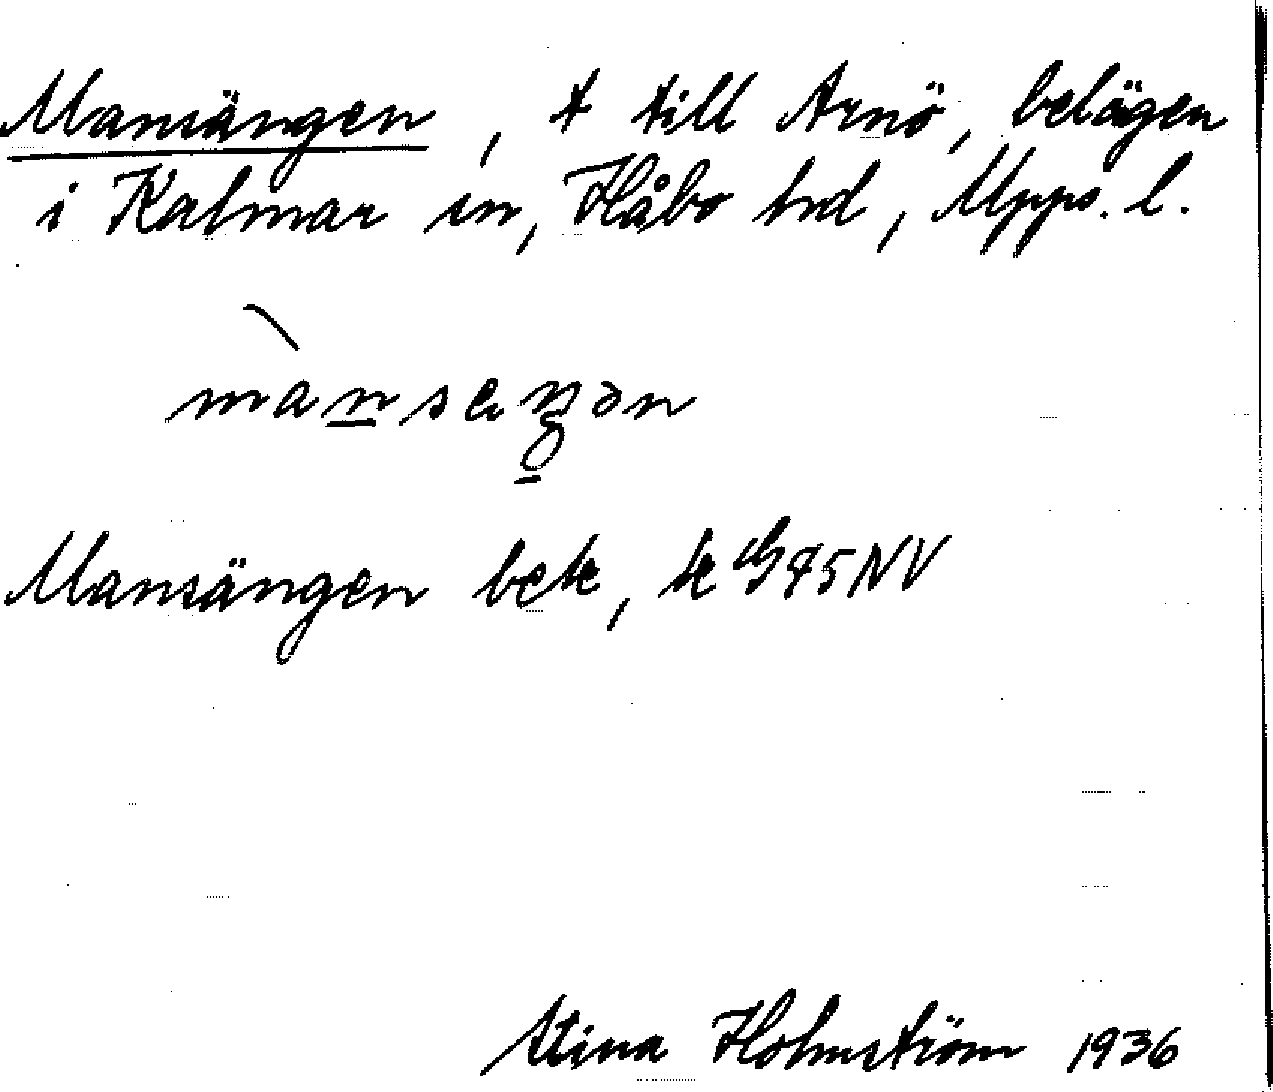 Mansängen, t till Arnö, belägen
i Kalmar sn, Håbo hd, Upps. l.
mànsɛŋən
Mansängen bete, ek G 95 NV
Stina Holmström 1936